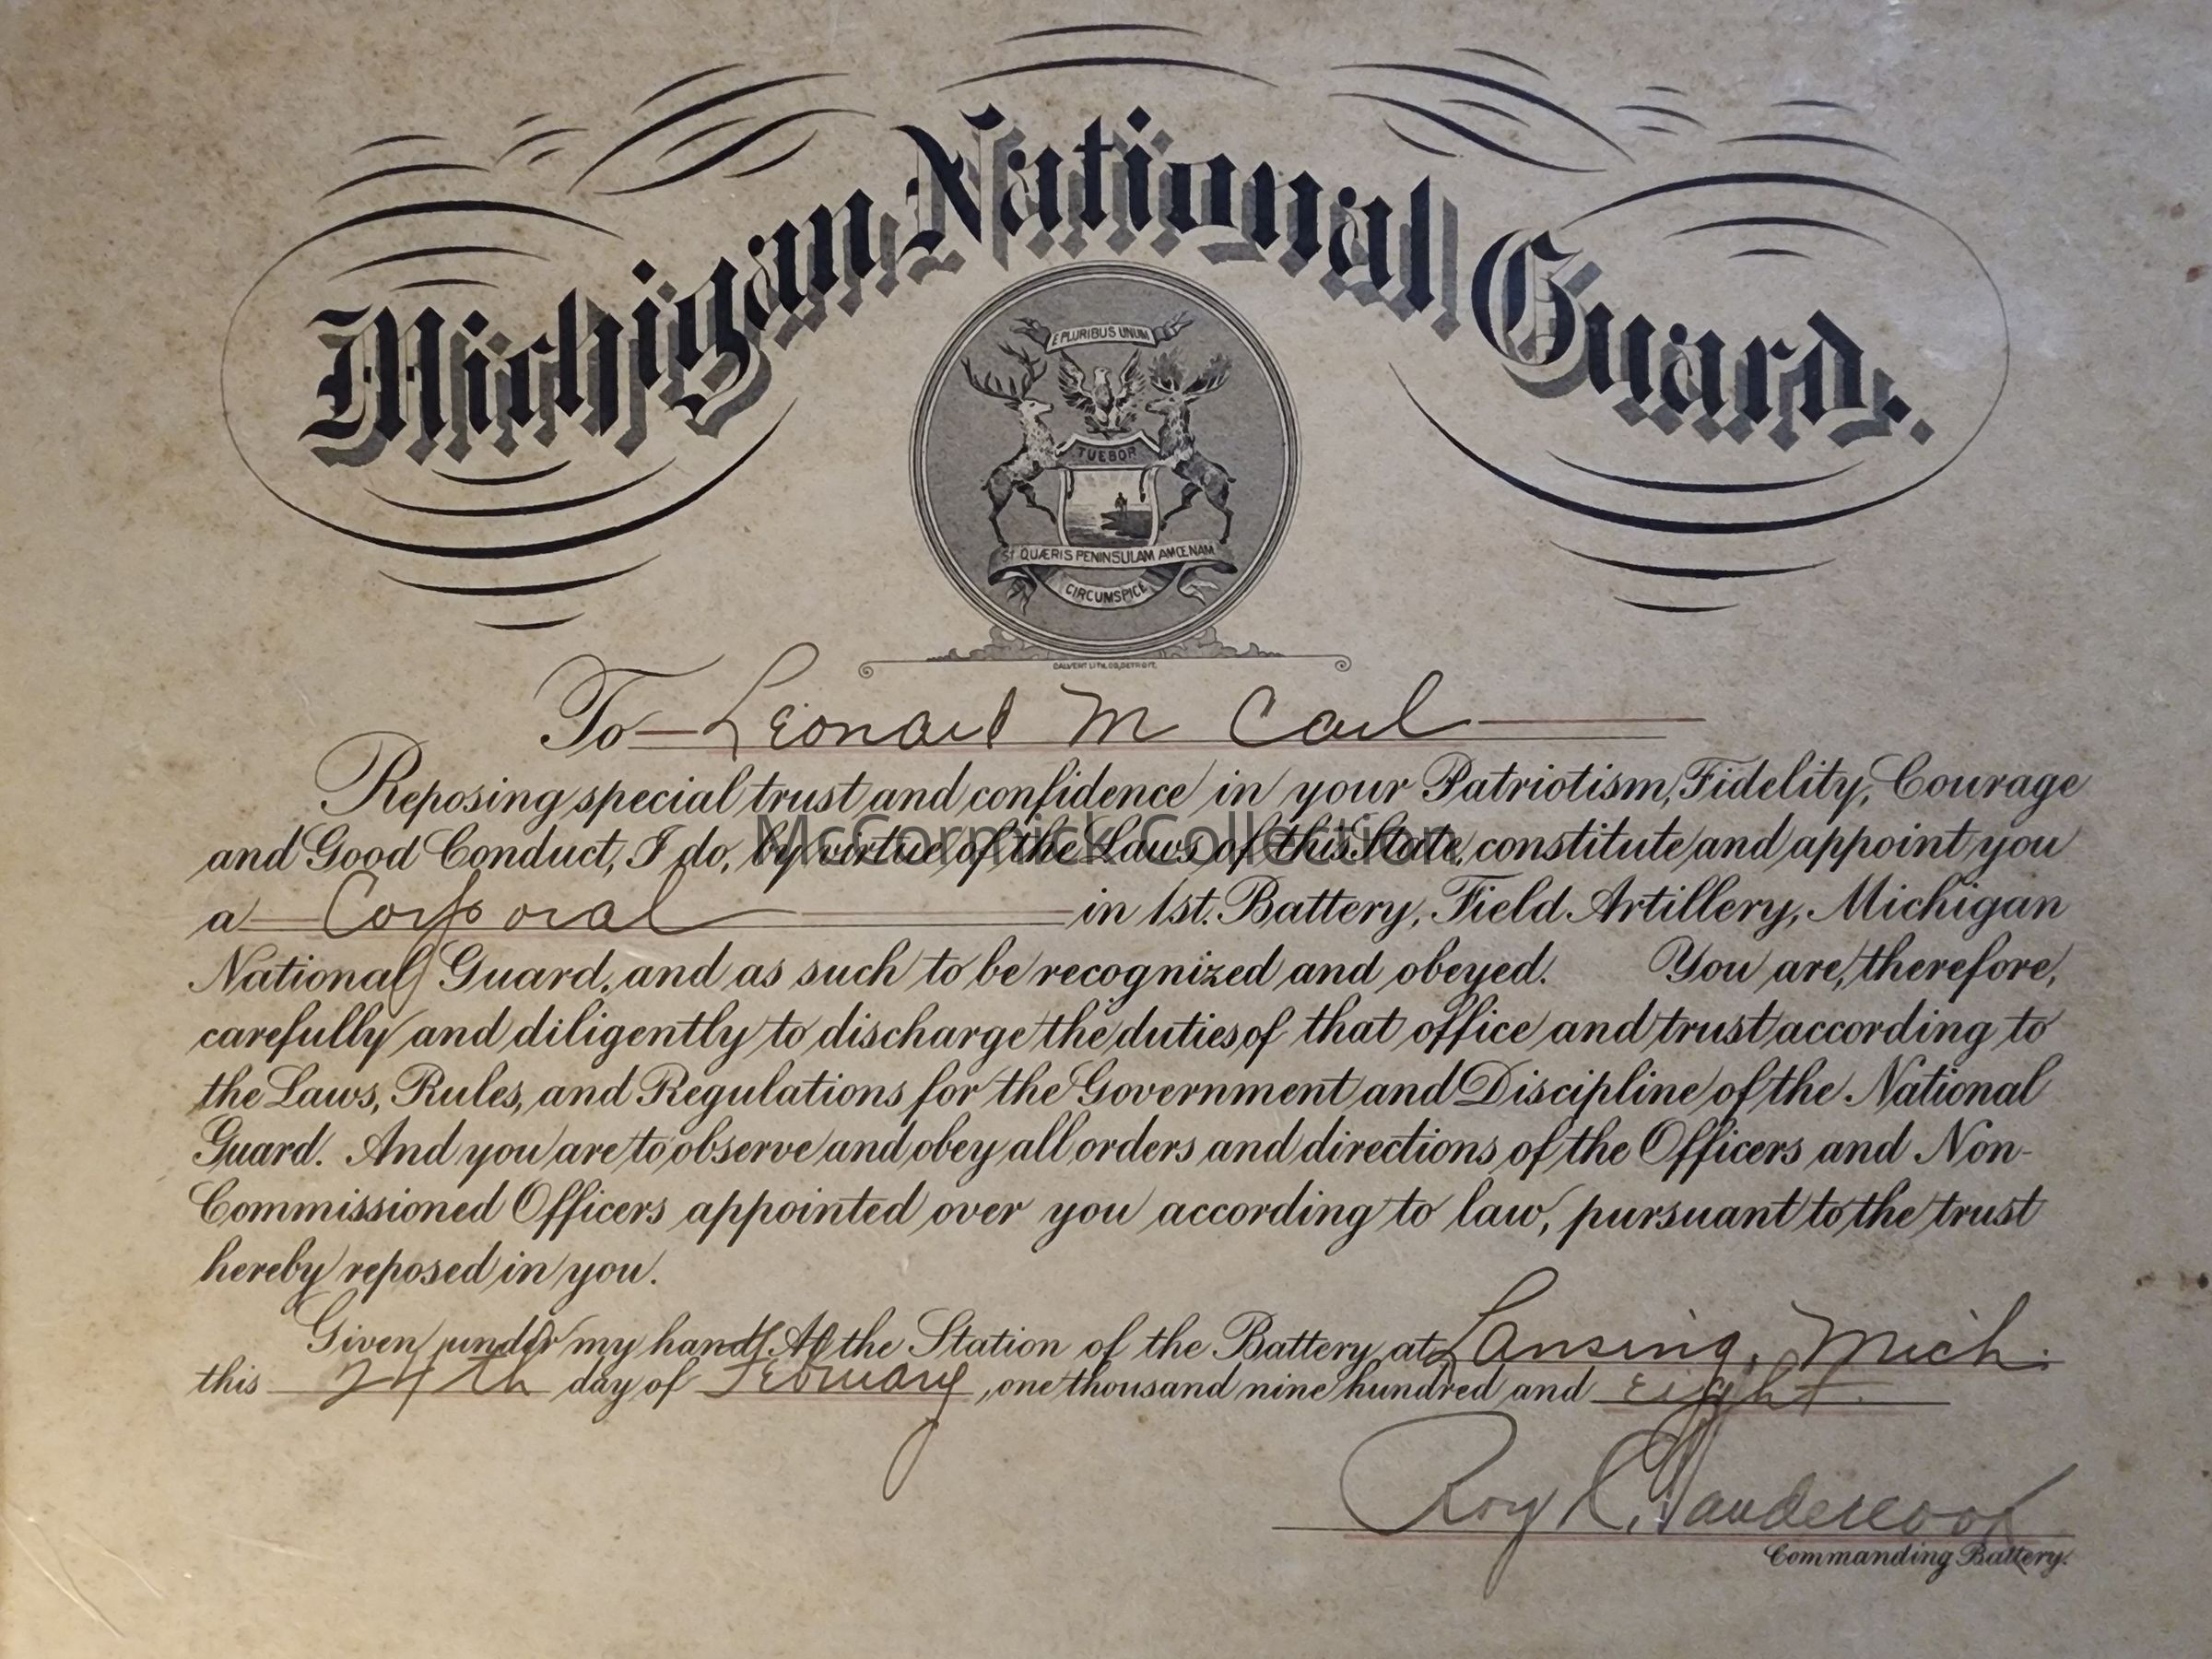 Michigan National Guard.
E PLURIBUS UNUM
TUEBOR
SI QUÆRIS PENINSULAM AMŒNAM
CIRCUMSPICE
CALVERT LITH. CO. DETROIT.
To Leonard M Carl
Reposing special trust and confidence in your Patriotism, Fidelity, Courage
and Good Conduct, I do, by virtue of the Laws of this State, constitute and appoint you
McCormick Collection
a Corporal in 1st. Battery, Field Artillery, Michigan
National Guard, and as such to be recognized and obeyed. You are, therefore,
carefully and diligently to discharge the duties of that office and trust according to
the Laws, Rules, and Regulations for the Government and Discipline of the National
Guard. And you are to observe and obey all orders and directions of the Officers and Non-
Commissioned Officers appointed over you according to law, pursuant to the trust
hereby reposed in you.
Given under my hand At the Station of the Battery at Lansing, Mich.
this 24th day of February, one thousand nine hundred and eight
Roy C. Vandercook
Commanding Battery.